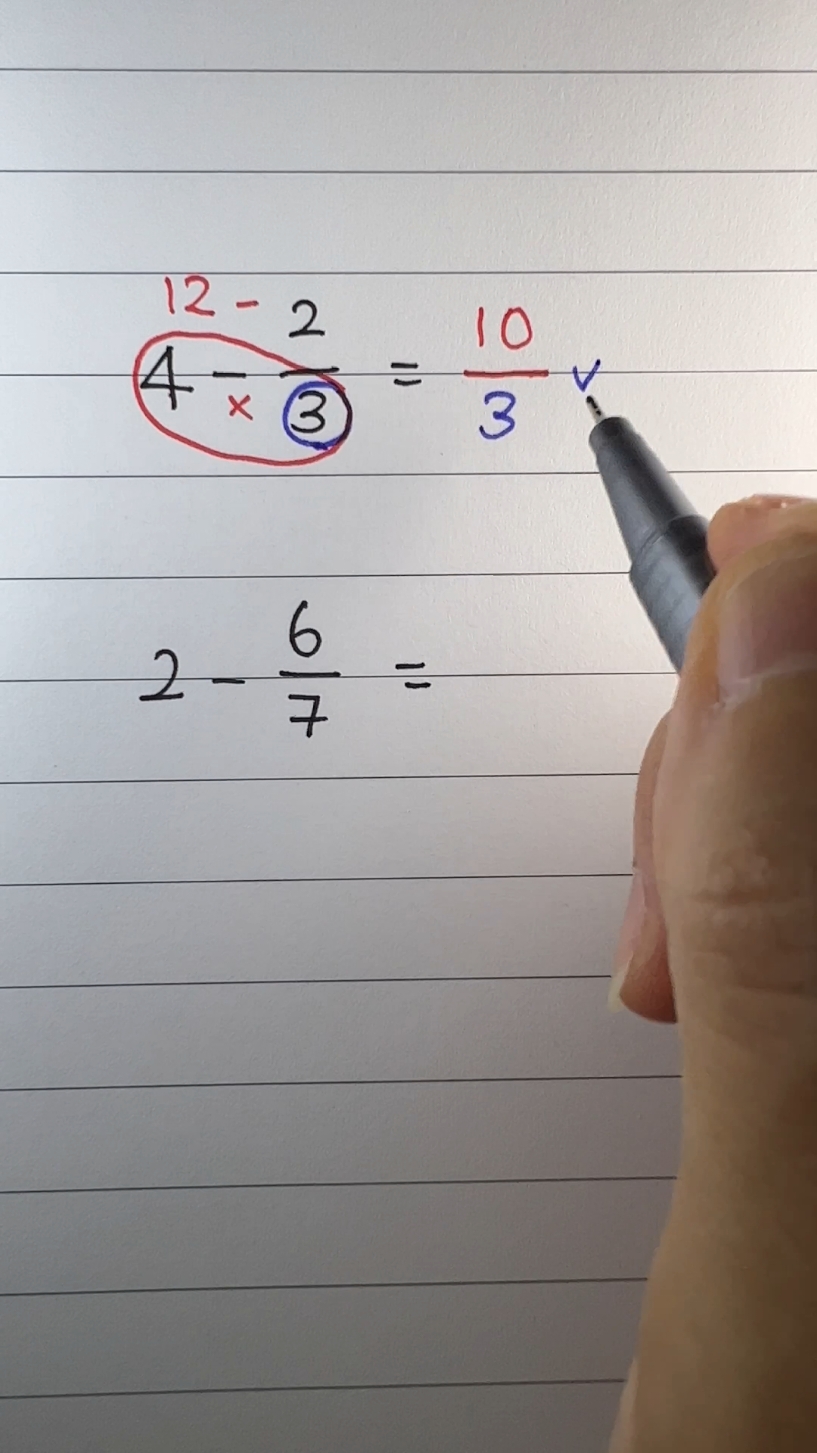 12 -
4 - 2/3 = 10/3 ✓
×
2 - 6/7 =